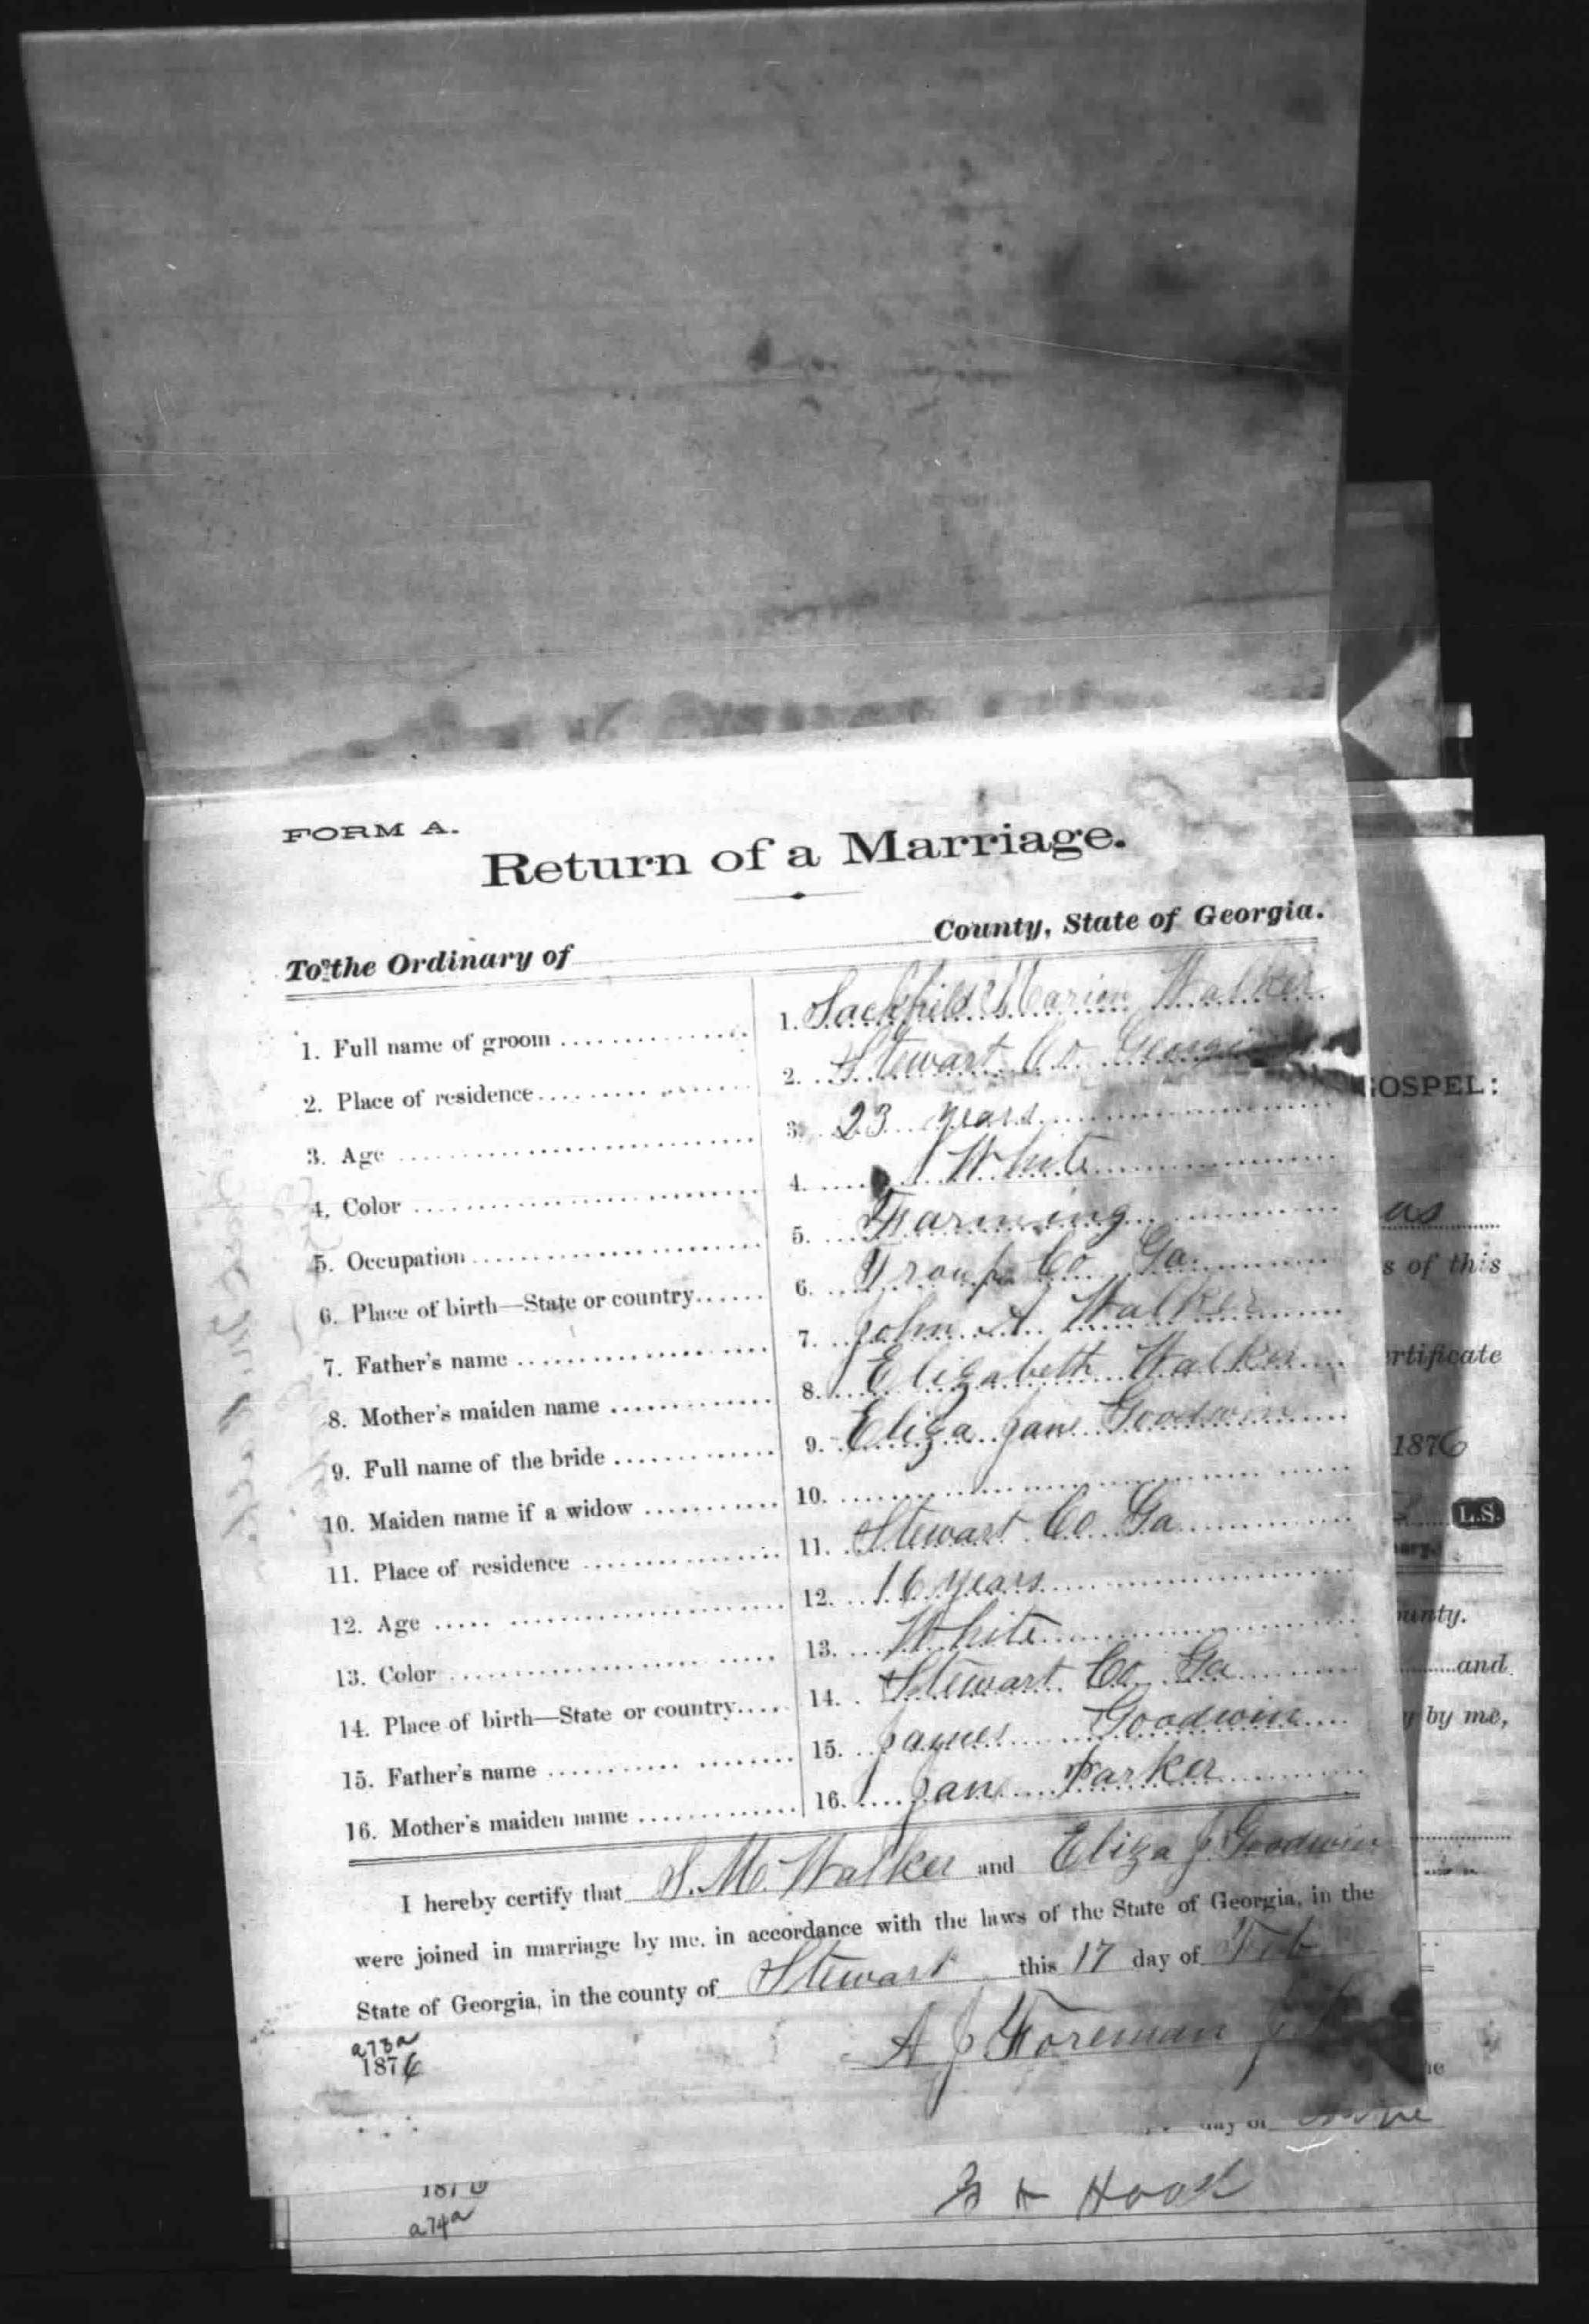 FORM A.
Return of a Marriage.
To the Ordinary of County, State of Georgia.
1. Full name of groom 1. Sackfield Marion Walker
2. Place of residence 2. Stewart Co Georgia
3. Age 3. 23 years
4. Color 4. White
5. Occupation 5. Farming
6. Place of birth—State or country 6. Troup Co Ga
7. Father's name 7. John A Walker
8. Mother's maiden name 8. Elizabeth Walker
9. Full name of the bride 9. Eliza Jane Goodwin
10. Maiden name if a widow 10.
11. Place of residence 11. Stewart Co Ga
12. Age 12. 16 years
13. Color 13. White
14. Place of birth—State or country 14. Stewart Co Ga
15. Father's name 15. James Goodwin
16. Mother's maiden name 16. Jane Parker
I hereby certify that S. M. Walker and Eliza J. Goodwin
were joined in marriage by me, in accordance with the laws of the State of Georgia, in the
State of Georgia, in the county of Stewart this 17 day of Feb
a73a
1876 A J Foreman
GOSPEL:
as
s of this
ertificate
1876
L.S.
ounty.
and
by me,
day of
1876 Hook
a74a